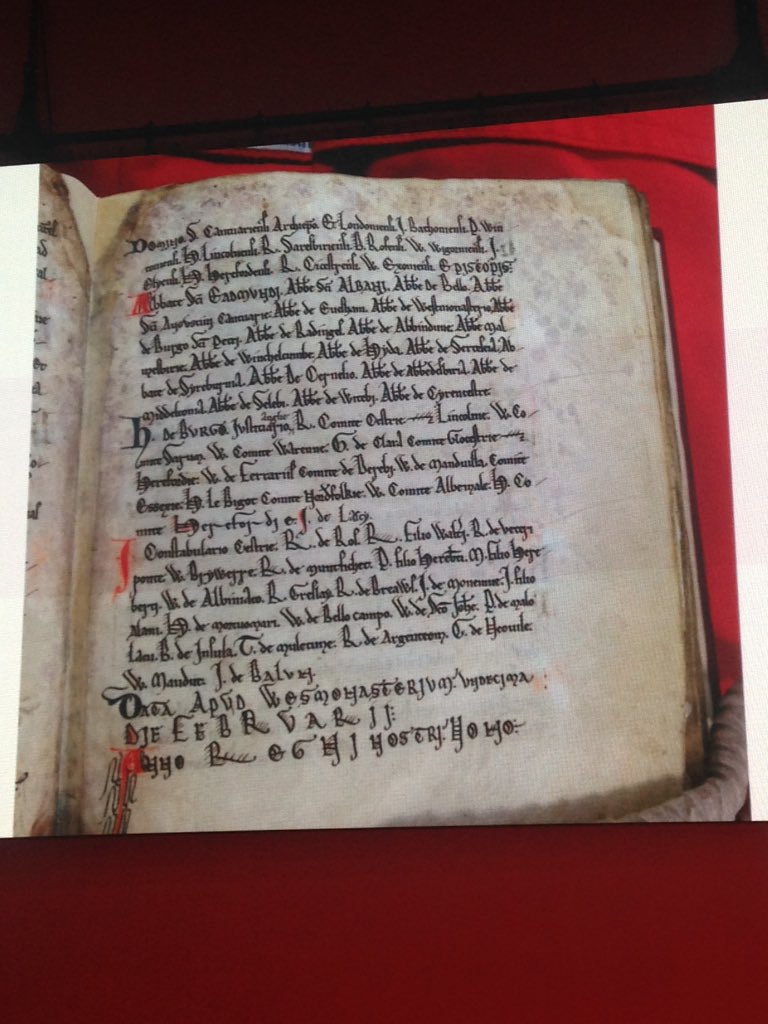 Domino S. Cantuariensi Archiepo. E. Londoniensi. J. Bathoniensi. P. Win
toniensi. H. Lincolniensi. R. Saresbiriensi. B. Rofensi. W. Wigorniensi. J.
Eliensi. H. Herefordensi. R. Cicestrensi. W. Exoniensi. EPISCOPIS.
Abbate Sci EADMUNDI. Abbe Sci ALBANI. Abbe De Bello. Abbe
Sci Augustini Cantuarie. Abbe de Euesham. Abbe de Westmonasterio. Abbe
de Burgo Sci Petri. Abbe de Radinges. Abbe de Abbindune. Abbe Mal
mesbirie. Abbe de Winchelcumbe. Abbe de Hyda. Abbe de Certesei. Ab
bate de Syreburnia. Abbe De Cernelio. Abbe de Abbedesburia. Abbe de
Middeltonia. Abbe de Selebi. Abbe de Witebi. Abbe de Cyrencestre.
H. de BURGO Justiciario. R. Comite Cestrie Lincolnie. W. Co
Anglie
mite Sarum. W. Comite Warenne. G. de Clara Comite Gloecestrie
Herefordie. W. de Ferrariis Comite de Derebi. W. de Mandeuilla Comite
Essexie. H. Le Bigot Comite Nordfolkie. W. Comite Albemale. H. Co
mite Herefordie. J. de Lascy.
Constabulario Cestrie. R. de Ros. R. filio Walteri. R. de veteri
ponte. W. Bruwerre. R. de muntfichet. P. filio Hereberti. M. filio Here
berti. W. de Albiniaco. R. Gresley. R. de Breawse. J. de Monemue. J. filio
Alani. H. de mortuomari. W. de Bello campo. W. de Sco Johe. P. de malo
Lacu. B. de Insula. T. de muletune. R. de Argenteom. G. de Neouile.
W. Mauduit. J. de Balun.
DATA APUD WESMONASTERIUM. UNDECIMA
DIE FEBRUARII:
ANNO REGNI NOSTRI NONO: